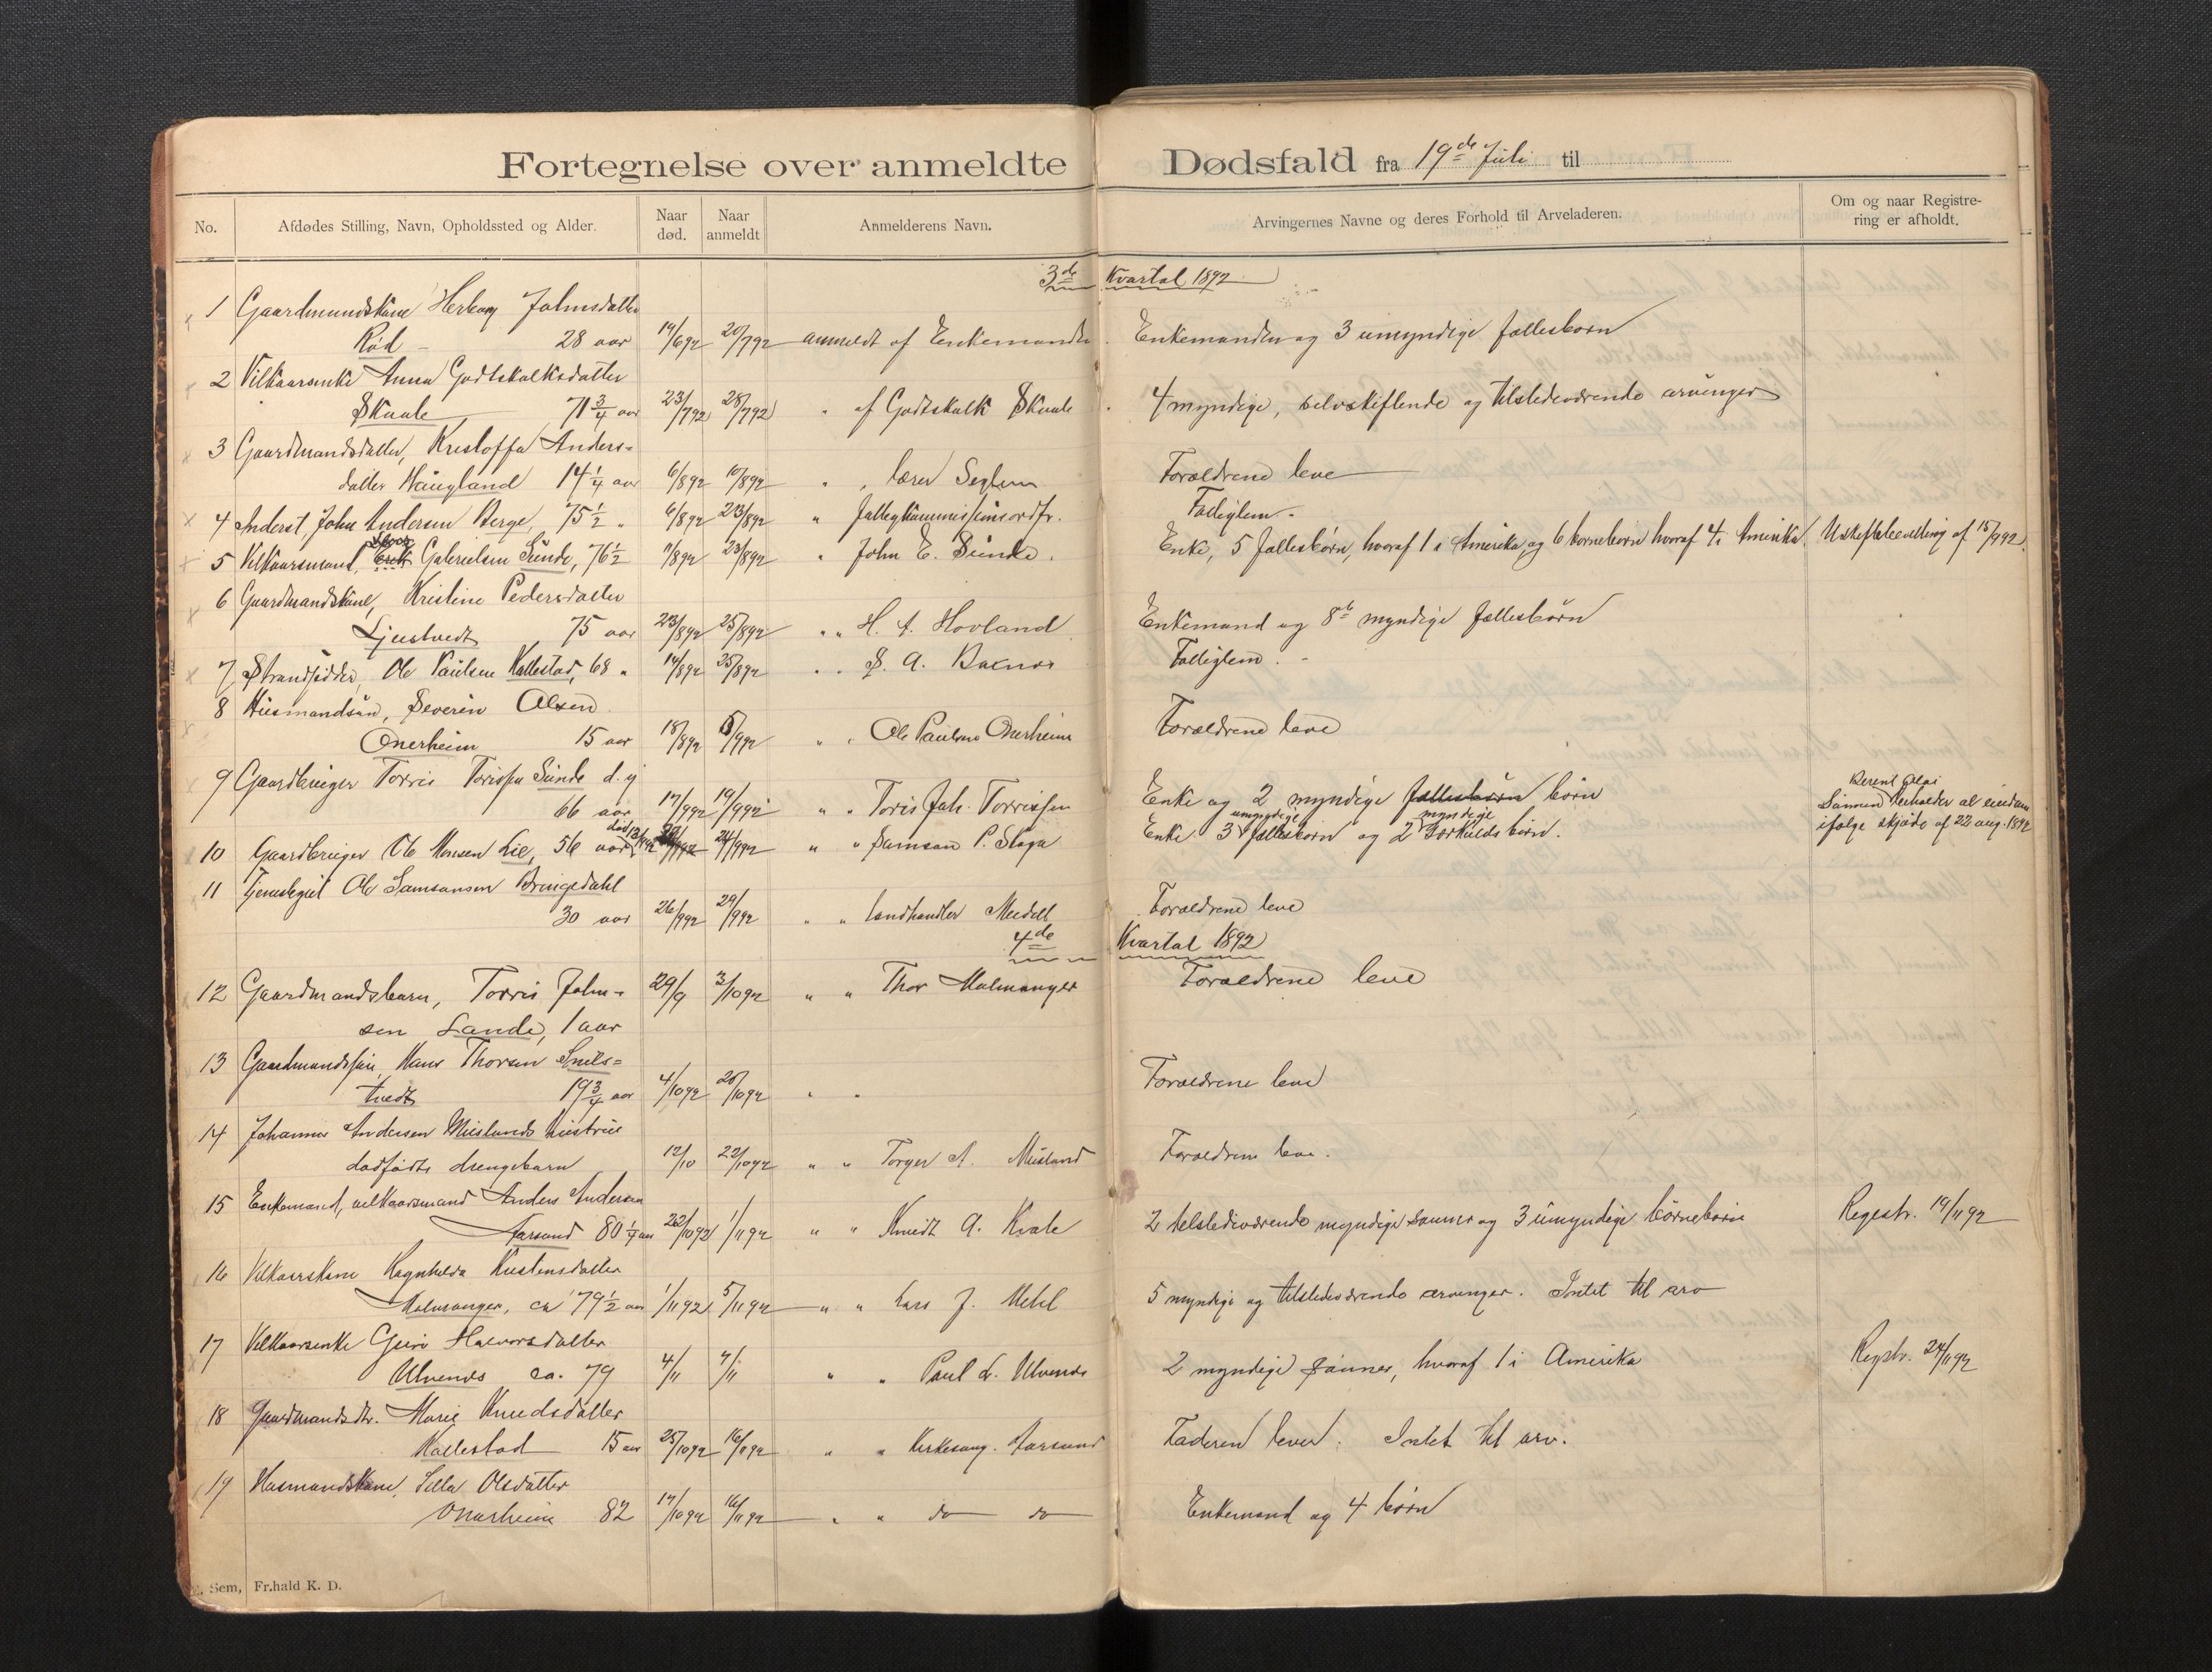 Fortegnelse over anmeldte Dødsfald fra 19de Juli til
No.
Afdødes Stilling, Navn, Opholdssted og Alder.
Naar død.
Naar anmeldt
Anmelderens Navn.
Arvingernes Navne og deres Forhold til Arveladeren.
Om og naar Registrering er afholdt.
3de Kvartal 1892
1 Gaardmandskone Herborg Johnsdatter
Rød 28 aar 19/6 92 20/7 92 anmeldt af Enkemanden Enkemanden og 3 umyndige fællesbørn
2 Vilkaarsenke Anna Godtskalksdatter
Skaale 71 3/4 aar 23/7 92 28/7 92 " af Godtskalk Skaale 4 myndige, selvskiftende og tilstedeværende arvinger
3 Gaardmandsdatter, Kristoffa Anders=
datter Haugland 14 1/4 aar 6/8 92 10/8 92 " " lærer Seglem Forældrene leve
4 Inderst, John Andersen Berge, 75 1/2 " 6/8 92 23/8 92 " fattigkommissionsordfr. Fattiglem.
5 Vilkaarsmand, Erik Gabrielsen Sunde, 76 1/2 11/8 92 23/8 92 " John E. Sunde. Enke, 5 fællesbørn, hvoraf 1 i Amerika og 6 børnebørn hvoraf 4 i Amerika Uskiftebevilling af 15/9 92.
6 Gaardmandskone, Kristine Pedersdatter
Ljustvedt 75 aar 23/8 92 25/8 92 " " H. A. Hovland Enkemand og 8te myndige fællesbørn
7 Strandsidder, Ole Paulsen Kallestad, 68 " 14/8 92 25/8 92 " " S. A. Fattiglem.
8 Husmandsøn, Severin Olsen
Onerheim 15 aar 18/8 92 5/9 92 " " Ole Paulsen Onerheim Forældrene leve
9 Gaardbruger Torris Torissen Sunde d.y
66 aar 17/9 92 19/9 92 " " Toris Joh. Torrissen Enke og 2 myndige fællesbørn børn
Berent Olai
Sønnen beholder al eiendom
ifølge skjøde af 22 aug. 1892
10 Gaardbruger Ole Monsen Lie, 56 aar død 24/9 92 " " Samson P. Skaga Enke 3 umyndige fællesbørn og 2 myndige særkuldsbørn.
11 Tjenestegut Ole Samsonsen Bringedahl
30 aar 26/9 92 29/9 92 " " Landhandler Meidell Forældrene leve
4de Kvartal 1892
12 Gaardmandsbarn, Torris John-
sen Lande, 1 aar 29/9 3/10 92 " " Thor Malmanger Forældrene leve
13 Gaardmandssøn, Hans Thorsen Snils=
tvedt 19 3/4 aar 4/10 92 20/10 92 " " Forældrene leve
14 Johannes Andersen Muslands hustrue
dødfødte drengebarn 12/10 22/10 92 " " Torger A. Musland Forældrene leve.
15 Enkemand, vilkaarsmand Anders Andersen
Aarsand 80 1/4 aar 22/10 92 1/11 92 " " Knudt A. Kvale 2 tilstedeværende myndige sønner og 3 umyndige børnebørn Registr. 14/11 92
16 Vilkaarskone Ragnhilda
Malmanger, ca 79 1/2 aar 1/11 92 5/11 92 " " Lars J. Mehl 5 myndige og tilstedeværende arvinger. Intet til arv
17 Vilkaarsenke Guri Halvorsdatter
Ulvenes ca. 79 4/11 7/11 " " Paul L. Ulvenes 2 myndige sønner, hvoraf 1 i Amerika Regstr. 24/11 92
18 Gaardmandsdtr. Marie Knudsdatter
Kallestad 15 aar 25/10 92 16/11 92 " " Kirkesang. Aarsand Faderen lever. Intet til arv.
19 Husmandskone, Silla Olsdatter
Onarheim 82 17/10 92 16/11 92 " " do do Enkemand og 4 børn
Sem, Fr.hald K. D.